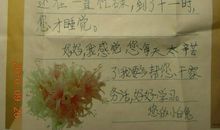 还在一直忙碌,到了十一时,
您才睡觉。
妈妈,我感觉您每天太辛苦
了我要帮您,干家
务活,好好学习。
您的小兔